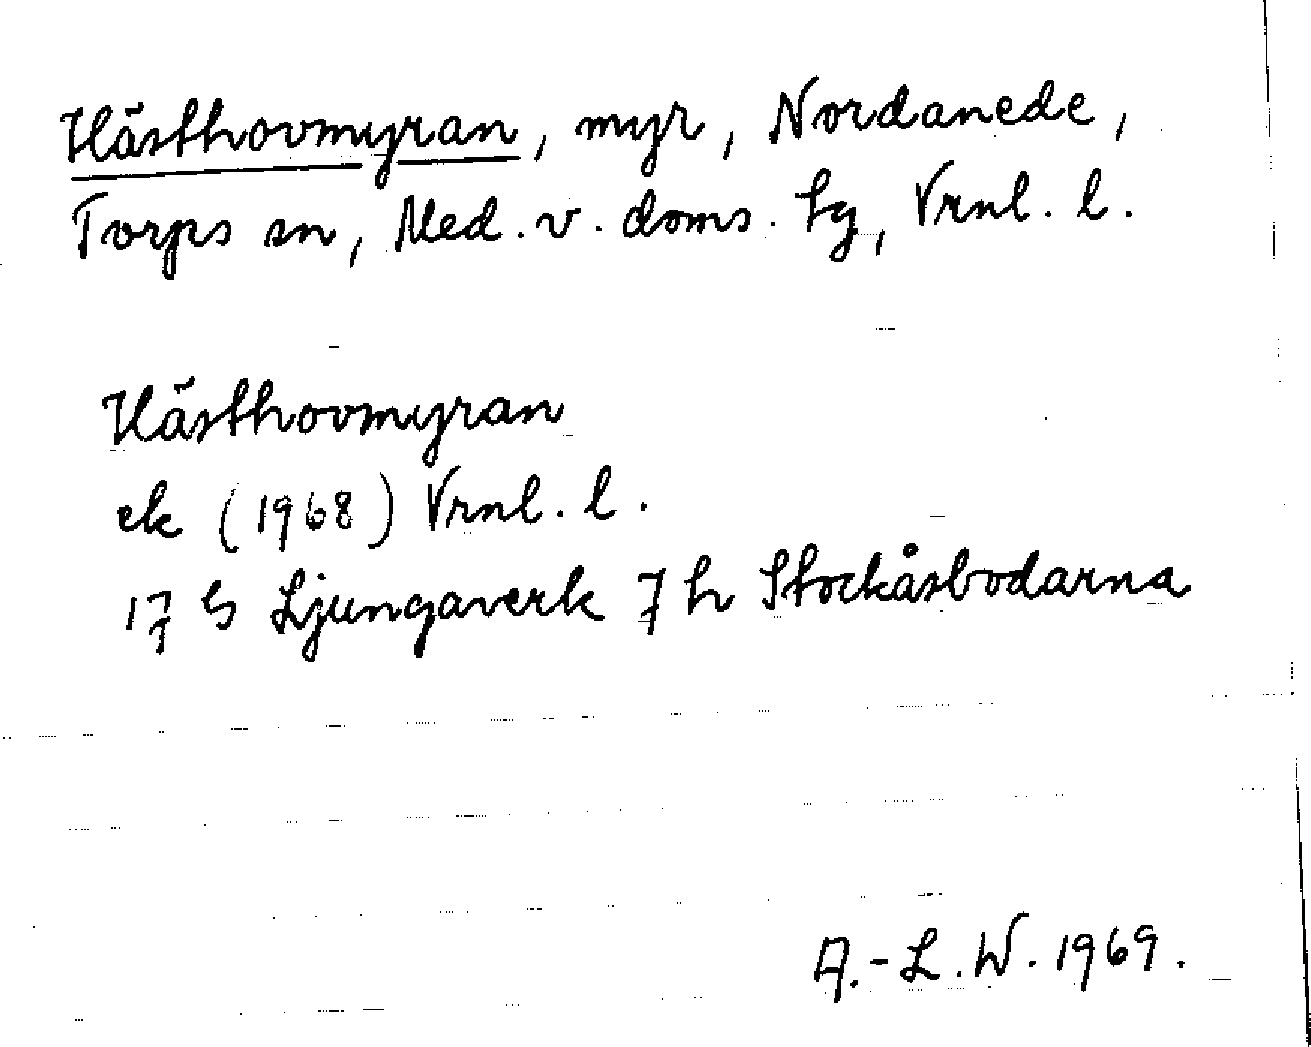 Hästhovmyran, myr, Nordanede,
Torps sn, Med. v. doms. tg, Vrnl. l.
Hästhovmyran
ek (1968) Vrnl. l.
17 G Ljungaverk 7 h Stockåsbodarna
A.-L.W. 1969.